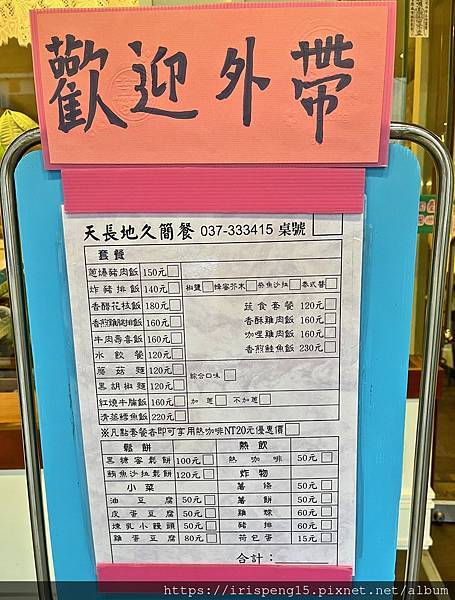 歡迎外帶
天長地久簡餐 037-333415 桌號
套餐
蔥爆豬肉飯 150元
炸豬排飯 140元 椒鹽 蜂蜜芥末 柴魚沙拉 泰式醬
香醋花枝飯 180元 蔬食套餐 120元
香煎雞腿排飯 160元 香酥雞肉飯 160元
牛肉壽喜飯 160元 咖哩雞肉飯 160元
水餃餐 120元 香煎鮭魚飯 230元
蘑菇麵 120元 綜合口味
黑胡椒麵 120元
紅燒牛腩飯 160元 加蔥 不加蔥
清蒸鱈魚飯 220元
※凡點套餐者即可享用熱咖啡NT20元優惠價
鬆餅 熱飲
黑糖蜜鬆餅 100元 熱咖啡 50元
鮪魚沙拉鬆餅 120元 炸物
小菜 薯條 50元
油豆腐 50元 薯餅 50元
皮蛋豆腐 50元 雞塊 60元
煉乳小饅頭 50元 豬排 60元
雞蛋豆腐 80元 荷包蛋 15元
合計：
https://irispeng15.pixnet.net/album